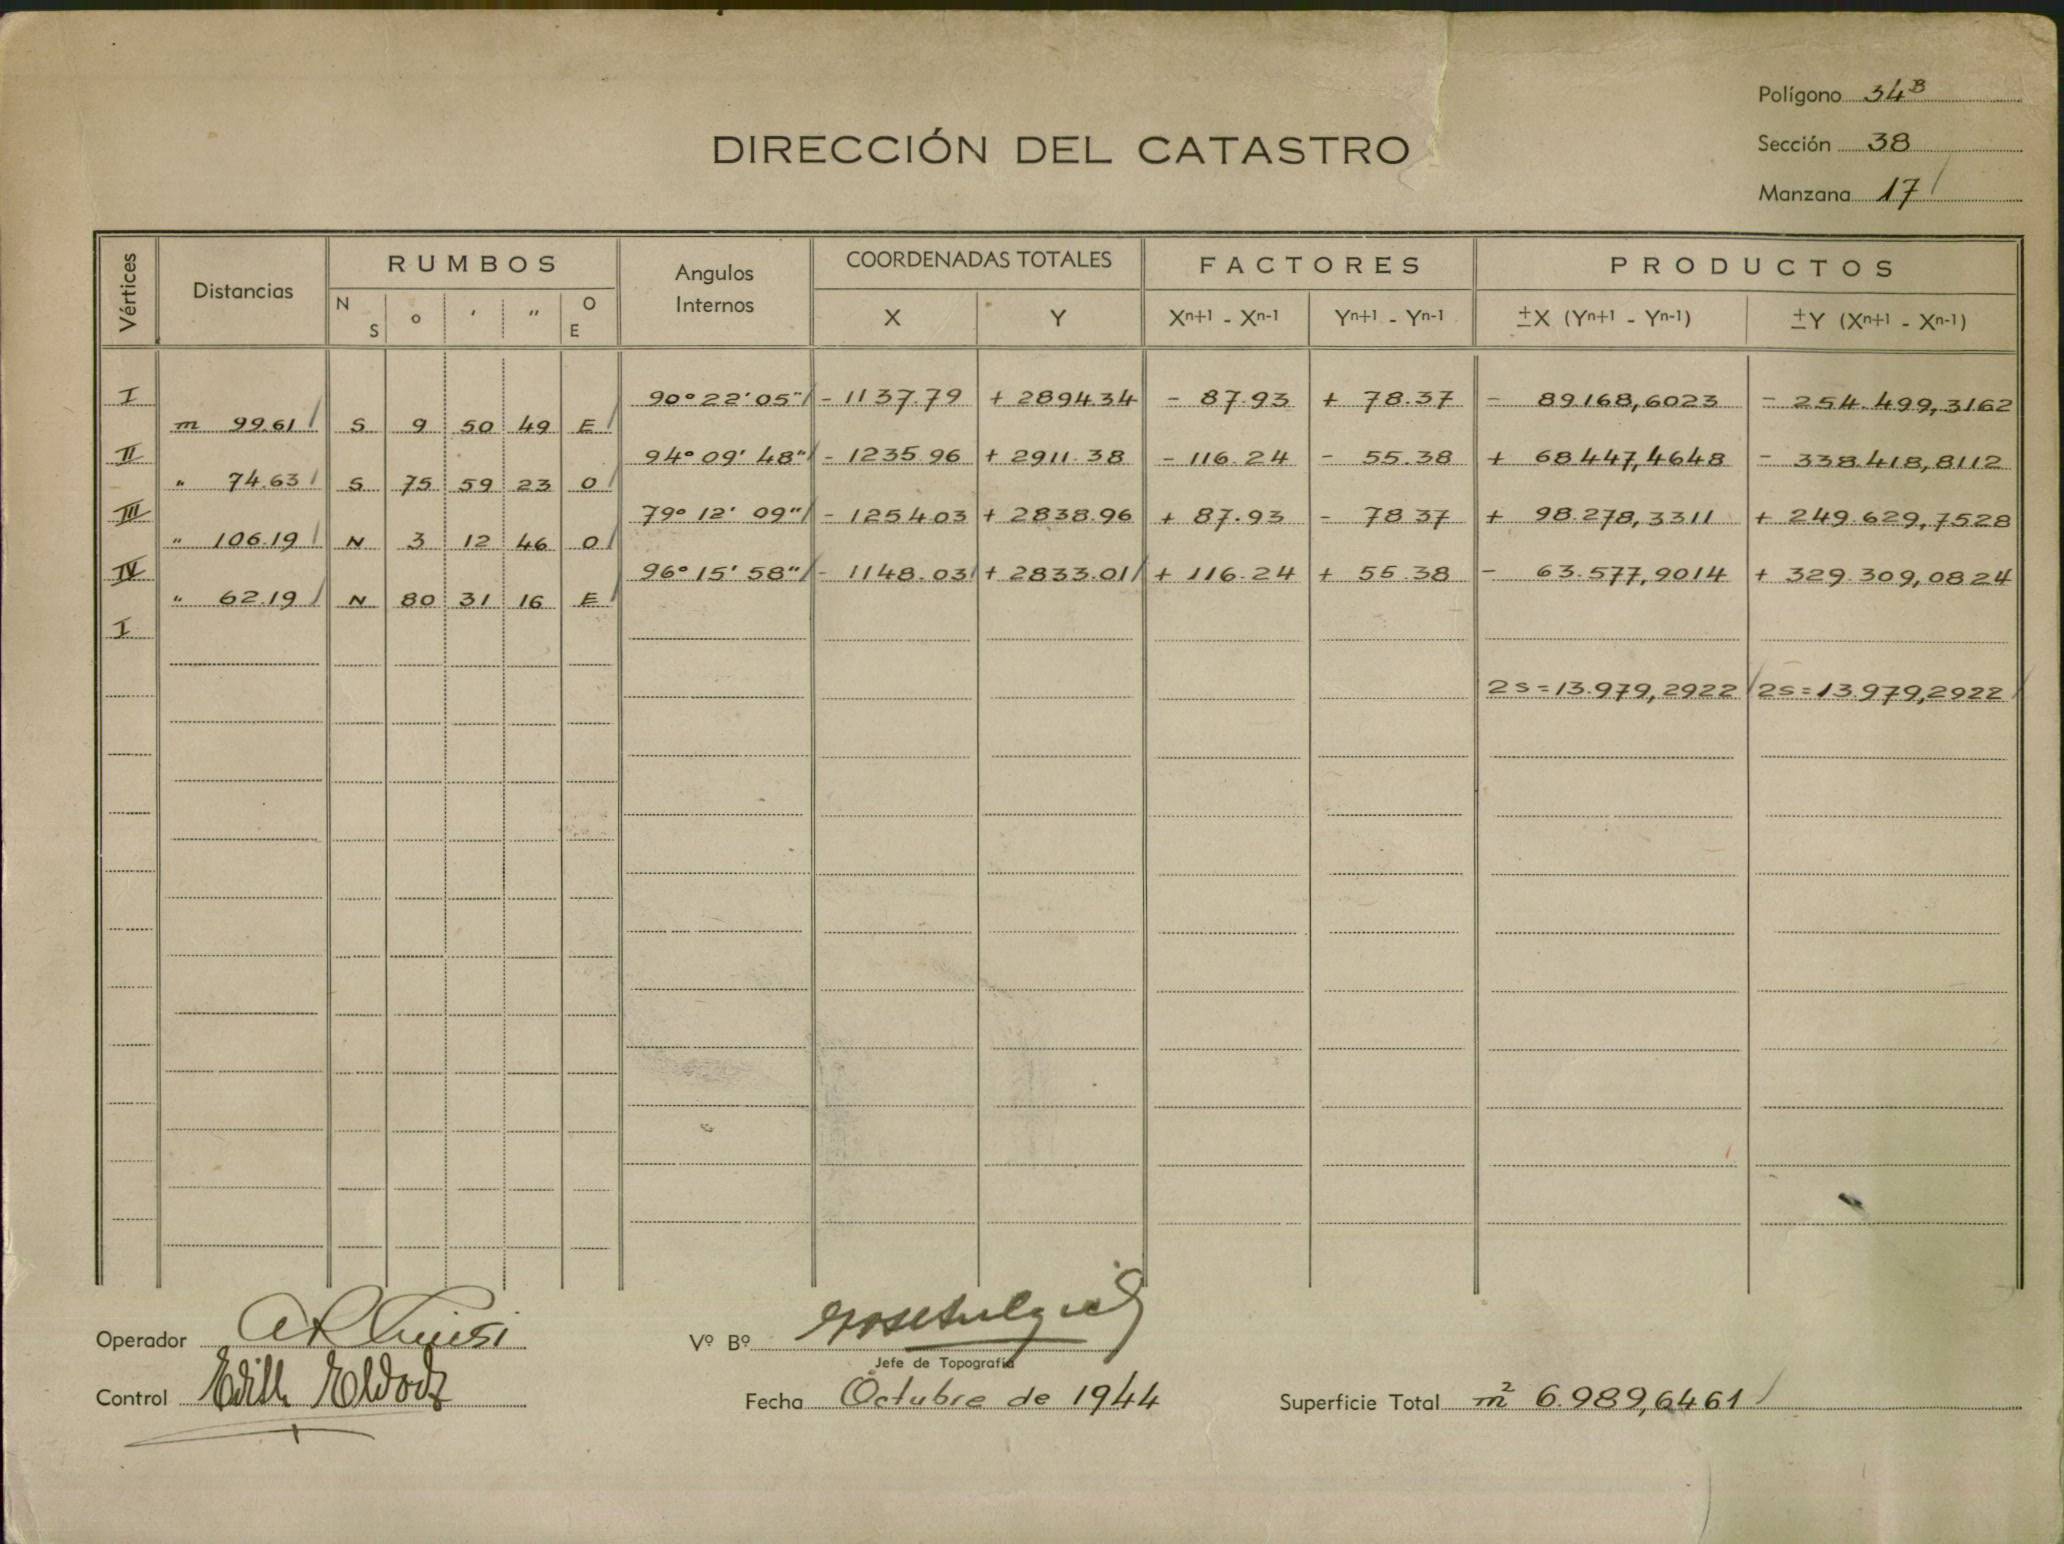 Polígono 34B
DIRECCIÓN DEL CATASTRO
Sección 38
Manzana 17
Vértices Distancias RUMBOS Angulos Internos COORDENADAS TOTALES FACTORES PRODUCTOS
N S ° ' " O E X Y Xn+1 - Xn-1 Yn+1 - Yn-1 ±X (Yn+1 - Yn-1) ±Y (Xn+1 - Xn-1)
I 90° 22' 05" - 1137.79 + 2894.34 - 87.93 + 78.37 - 89168,6023 - 254.499,3162
m 99.61 S 9 50 49 E
II 94° 09' 48" - 1235.96 + 2911.38 - 116.24 - 55.38 + 68447,4648 - 338.418,8112
" 74.63 S 75 59 23 O
III 79° 12' 09" - 1254.03 + 2838.96 + 87.93 - 78 37 + 98.278,3311 + 249.629,7528
" 106.19 N 3 12 46 O
IV 96° 15' 58" - 1148.03 + 2833.01 + 116.24 + 55.38 - 63.577,9014 + 329.309,0824
" 62.19 N 80 31 16 E
I
2S = 13.979,2922 2S = 13.979,2922
Operador
Vº Bº
Jefe de Topografía
Control Edith
Fecha Octubre de 1944
Superficie Total m2 6.989,6461